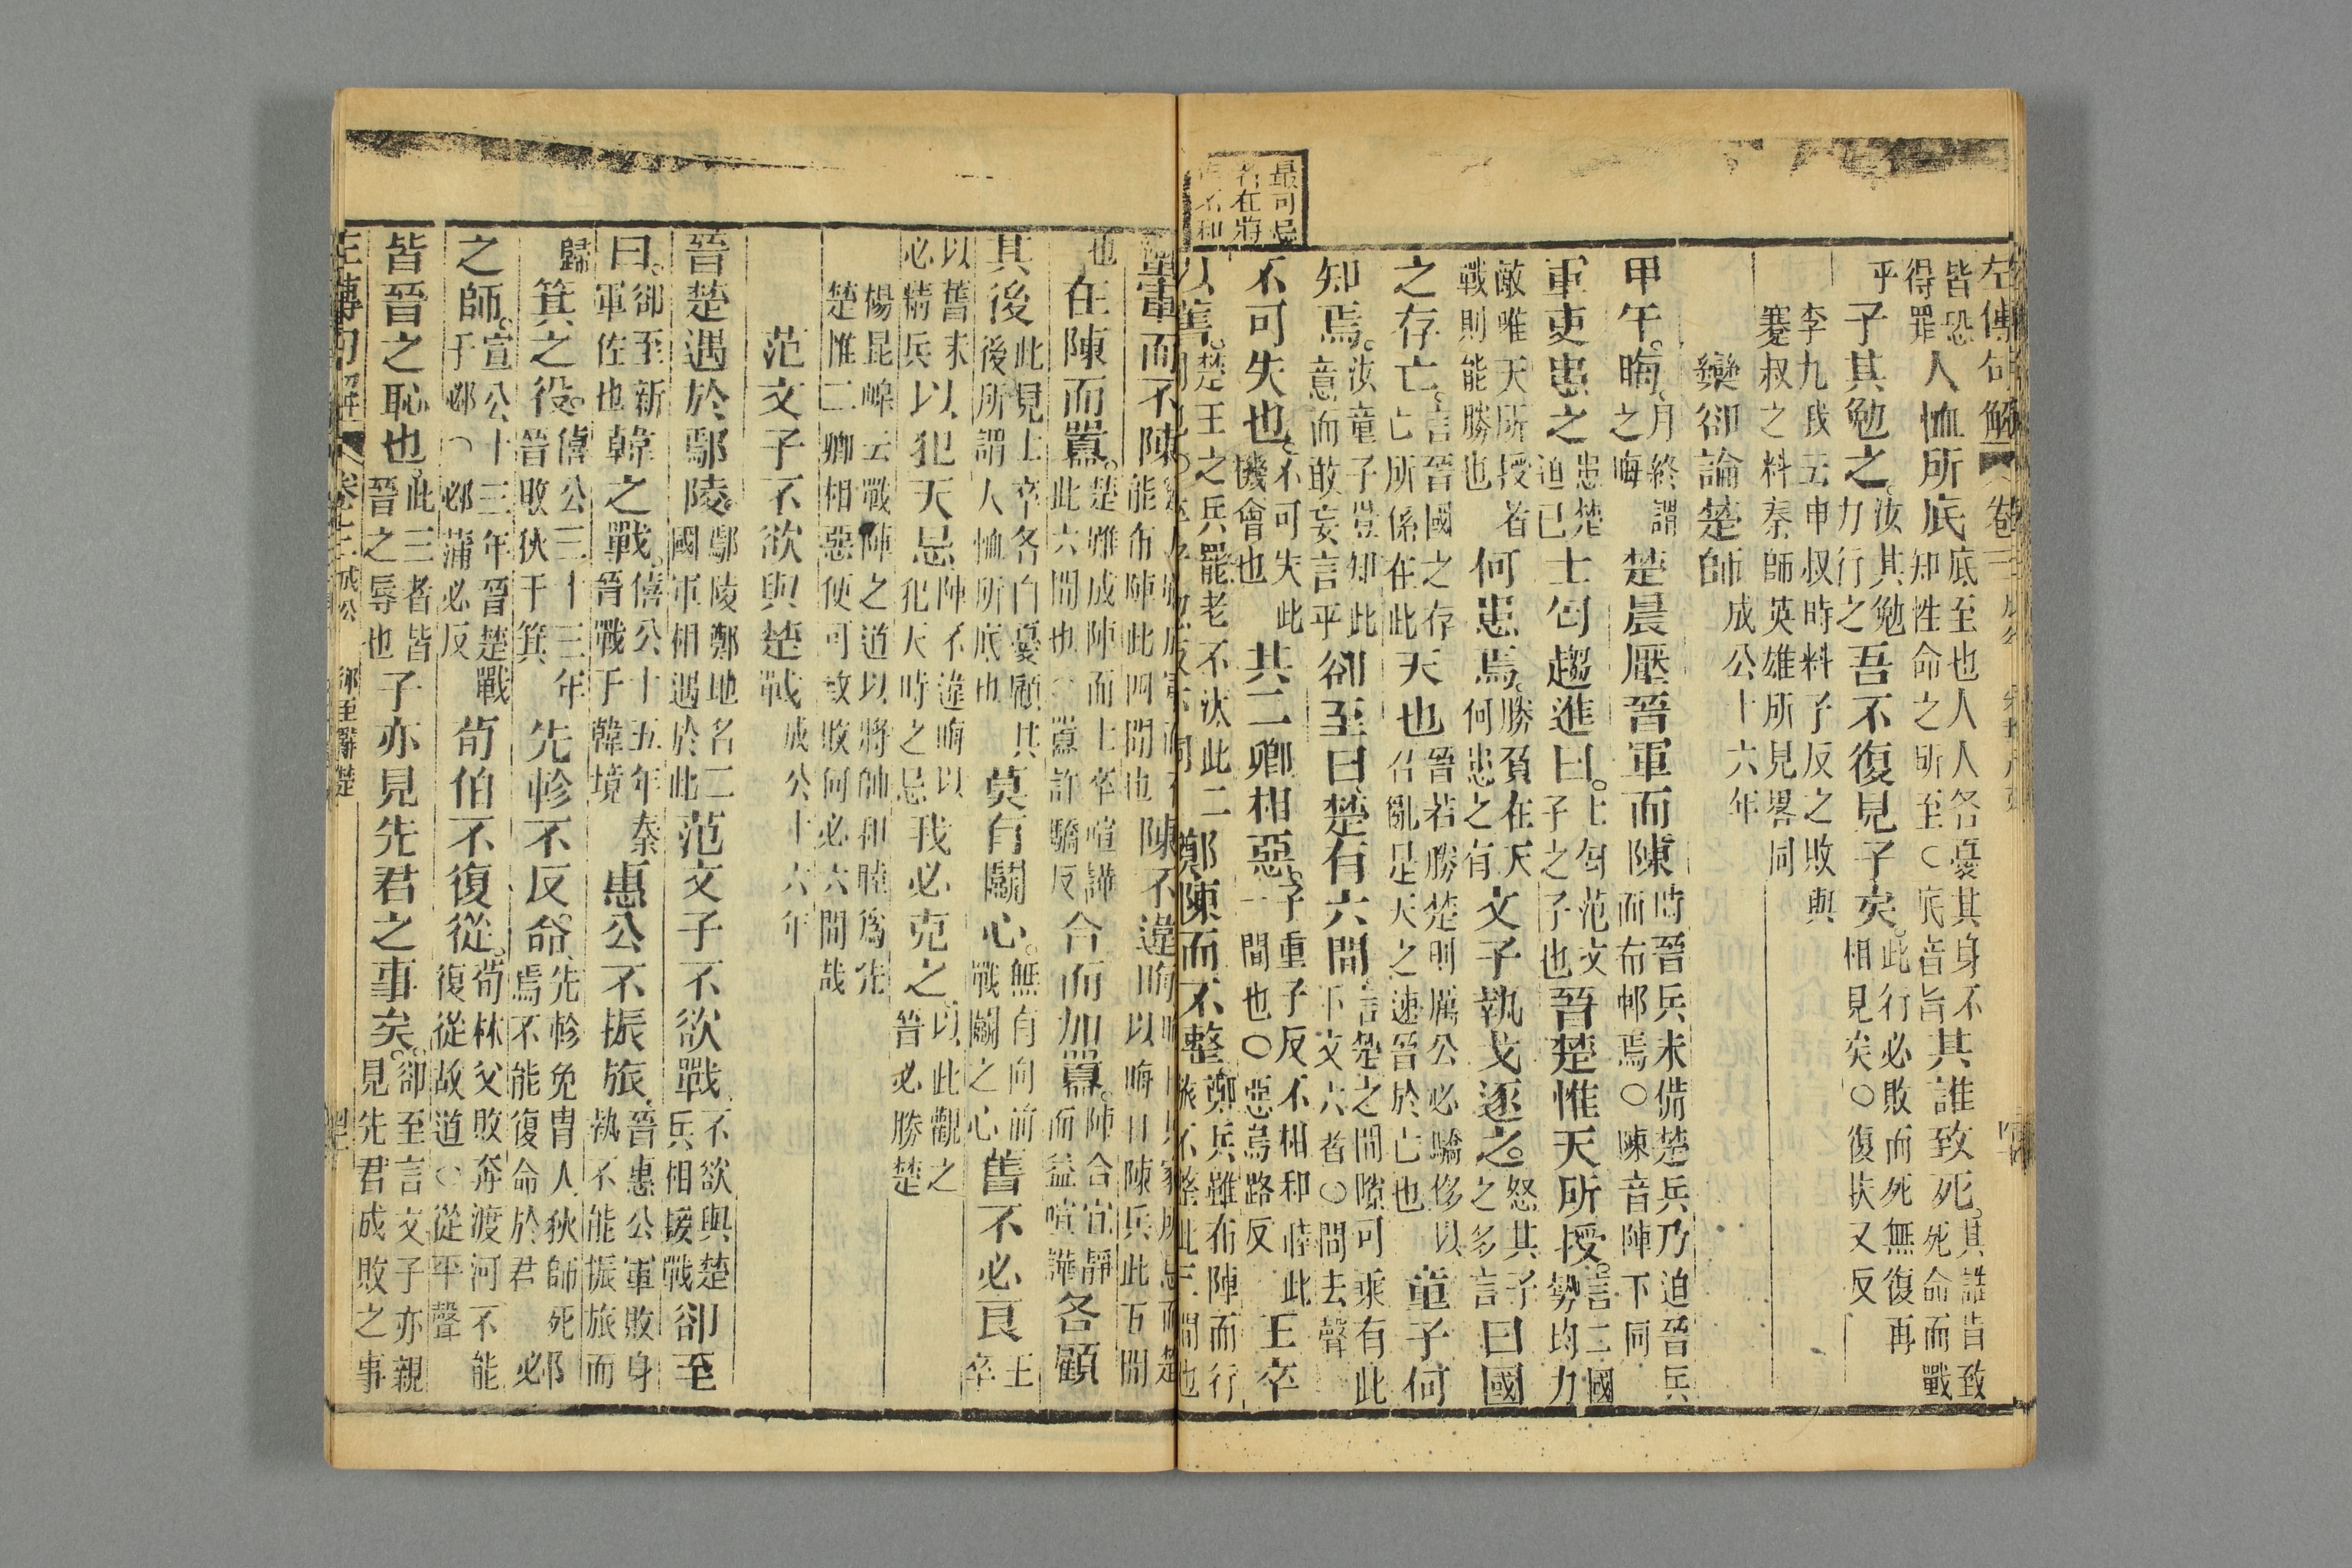 最可忌
者在將
左傳句解 卷三
皆恐得罪人恤所底底至也人人各憂其身不知性命之所至○底音旨其誰致死其誰皆致死命而戰
乎子其勉之汝其勉力行之吾不復見子矣此行必敗而死無復再相見矣○復扶又反
李九我云申叔時料子反之敗與
蹇叔之料秦師英雄所見畧同
欒卻論楚師成公十六年
甲午晦月終謂之晦楚晨壓晉軍而陳時晉兵未備楚兵乃迫晉兵而布陣焉○陳音陣下同
軍吏患之患楚迫已士匄趨進曰士匄范文子之子也晉楚惟天所授言二國勢均力
敵唯天所授者戰則能勝也何患焉勝負在天何患之有文子執戈逐之怒其子之多言曰國
之存亡言晉國之存亡所係在此天也晉若勝楚則厲公必驕侈以召亂是天之速晉於亡也童子何
知焉汝童子豈知此意而敢妄言乎卻至曰楚有六間言楚之間隙可乘有此下文六者○間去聲
不可失也不可失此機會也其二卿相惡子重子反不相和睦此一間也○惡烏路反王卒
以舊楚王之兵罷老不汰此二鄭陳而不整鄭兵雖布陣而行旅不整此三間也
蠻軍而不陳能布陳此四間也陳不違晦以晦日陳兵此五間
也在陳而嚣楚雖成陣而士卒喧譁此六間也○嚣許驕反合而加嚣陣合宜靜而益喧譁各顧
其後此見上卒各自憂顧其後所謂人恤所底也莫有鬬心無有向前戰鬬之心舊不必良王卒
以舊未必精兵以犯天忌陣不違晦以犯天時之忌我必克之以此觀之晉必勝楚
楊昆嵲云戰陣之道以將帥和睦爲先
楚惟二卿相惡便可致敗何必六間哉
范文子不欲與楚戰成公十六年
晉楚遇於鄢陵鄢陵鄭地名二國軍相遇於此范文子不欲戰不欲與楚兵相援戰卻至
曰卻至新軍佐也韓之戰僖公十五年秦晉戰于韓境惠公不振旅晉惠公軍敗身執不能振旅而
歸箕之役僖公三十三年晉敗狄于箕先軫不反命先軫免冑人狄師死焉不能復命於君邲必
之師宣公十三年晉楚戰于邲○邲蒲必反荀伯不復從荀林父敗奔渡河不能復從故道○從平聲
皆晉之恥也此三者皆晉之辱也子亦見先君之事矣卻至言文子亦親見先君成敗之事
左傳句解 卷三 成公